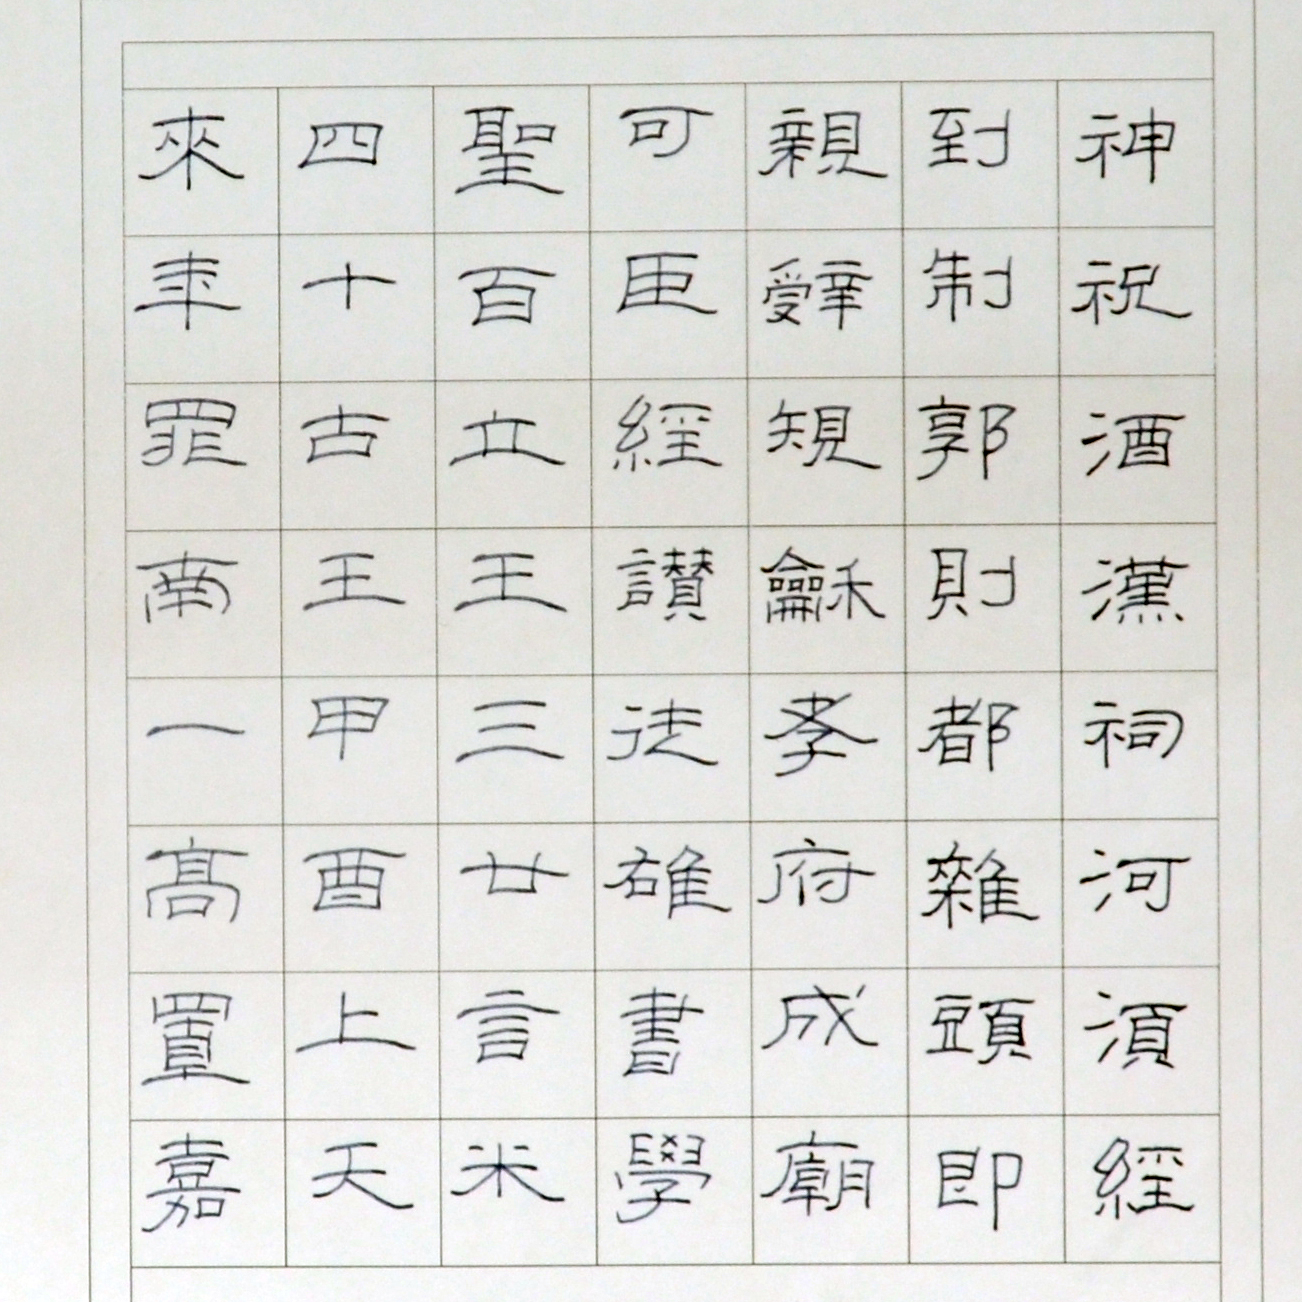 神祝酒漢祠河須經
到制郭則都雜頭即
親辤規龢孝府成廟
可臣經讚徒雄書學
聖百立王三廿言米
四十古王甲酉上天
來年罪南一高覃嘉